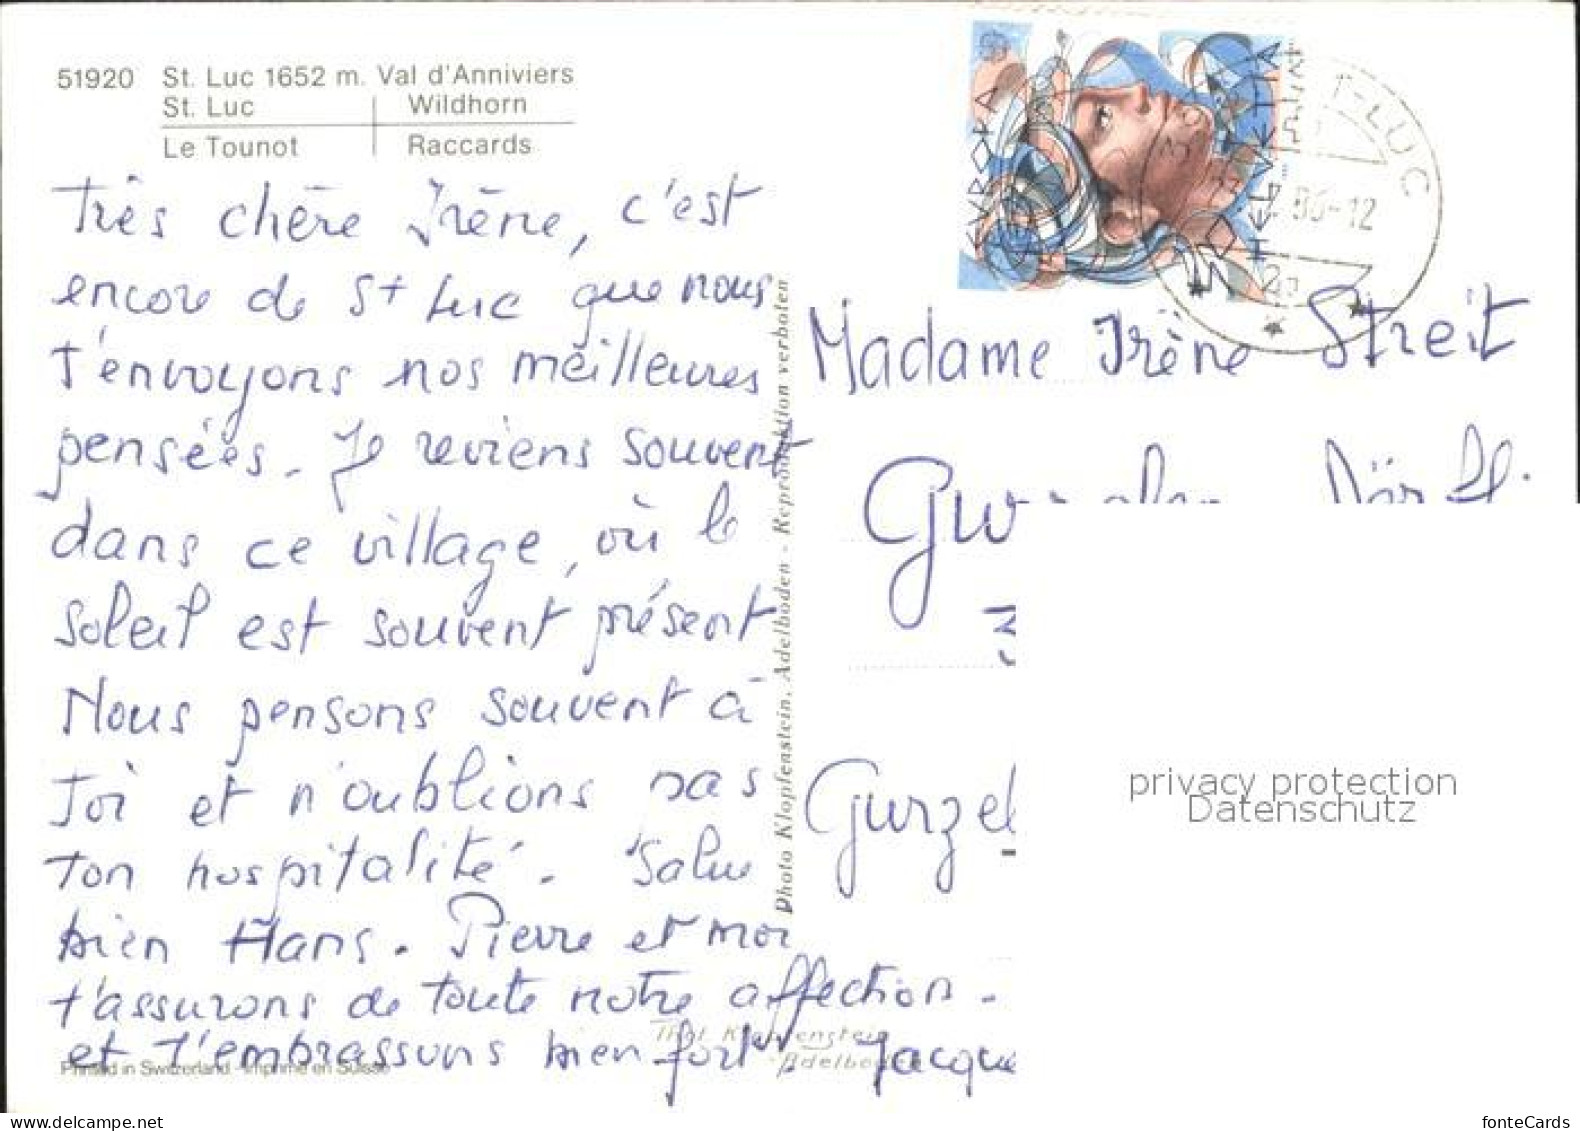 51920 St. Luc 1652 m. Val d'Anniviers
St. Luc | Wildhorn
Le Tounot | Raccards
Très chère Irène, c'est
encore de St Luc que nous
t'envoyons nos meilleures
pensées. Je reviens souvent
dans ce village, où le
soleil est souvent présent
Nous pensons souvent à
Toi et n'oublions pas
Ton hospitalité. Salue
bien Hans. Pierre et moi
t'assurons de toute notre affection.
et t'embrassons bien fort.
Printed in Switzerland - Imprimé en Suisse
Photo Klopfenstein, Adelboden - Reproduktion verboten
Phot. Klopfenstein
Adelboden
EUROPA
HELVETIA
ST-LUC
86-12
Madame Irène Streit
privacy protection
Datenschutz
www.delcampe.net
fonteCards